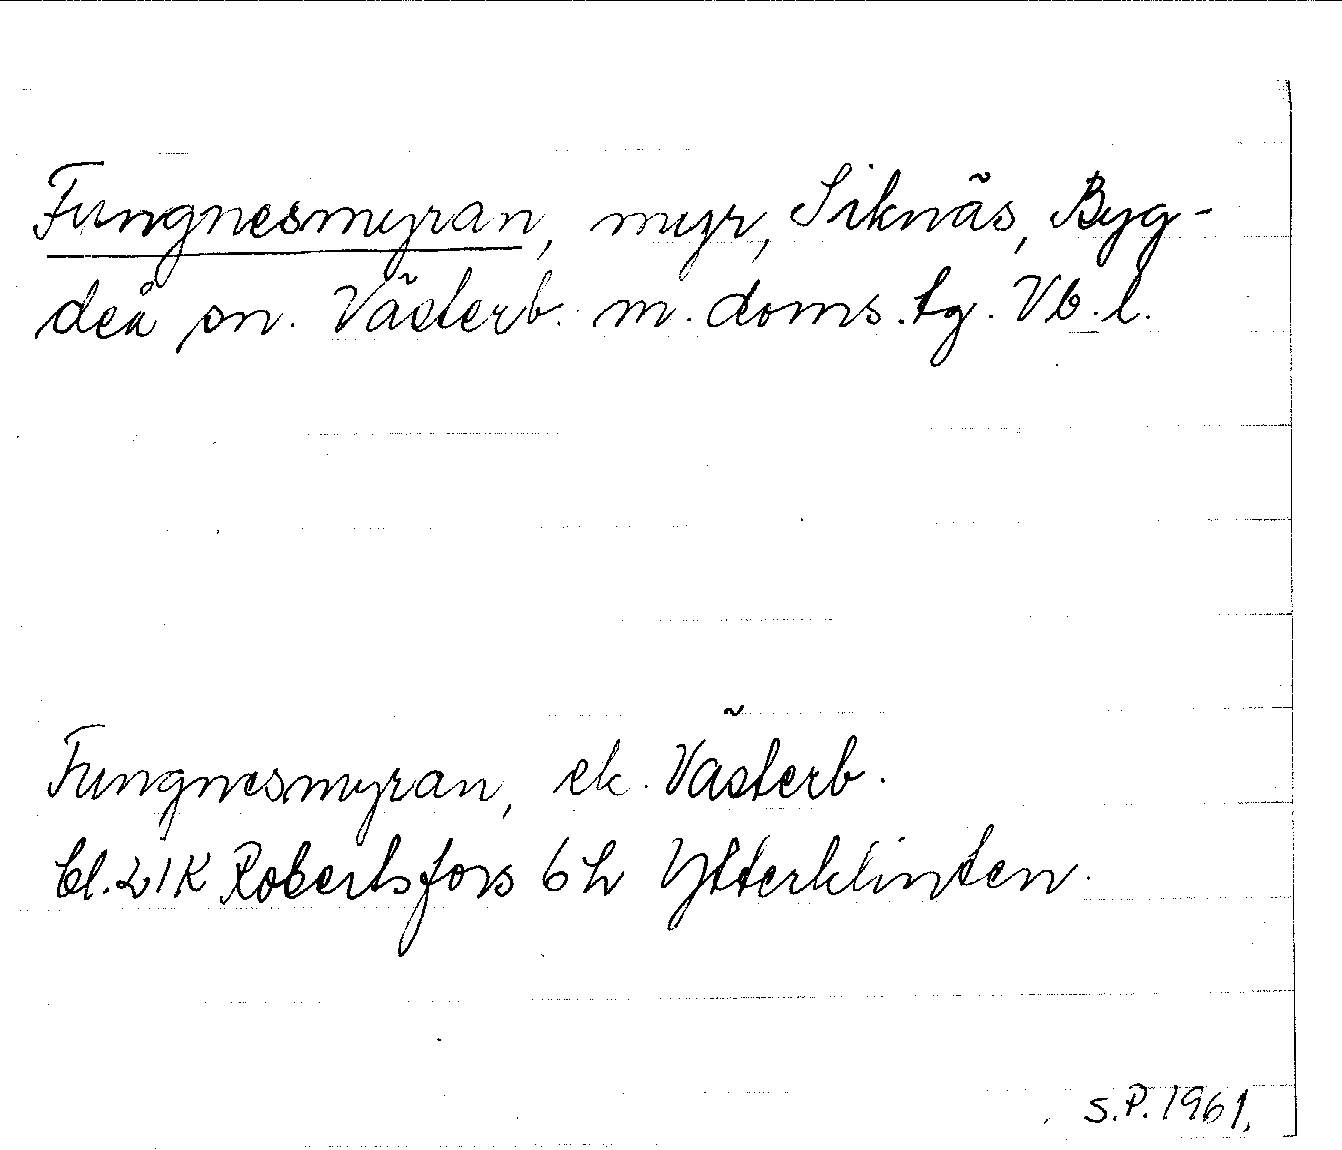 Fungnesmyran, myr, Siknäs, Byg-
deå sn. Västerb. m. doms. tg. Vb. l.
Fungnesmyran, ek. Västerb.
bl. 21K Robertsfors 6h Ytterklinten.
S.P. 1961.